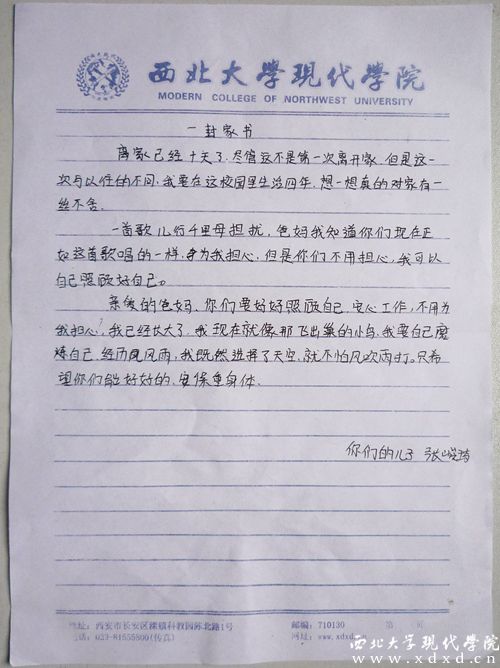 西北大学现代学院
MODERN COLLEGE OF NORTHWEST UNIVERSITY
一封家书
离家已经十天了，尽管这不是第一次离开家，但是这一
次与以往的不同，我要在这校园里生活四年，想一想真的对家有一
丝不舍。
一首歌儿行千里母担扰，爸妈我知道你们现在正
如这首歌唱的一样，身为我担心，但是你们不用担心，我可以
自己照顾好自己。
亲爱的爸妈，你们要好好照顾自己，安心工作，不用为
我担心，我已经长大了，我现在就像那飞出巢的小鸟，我要自己磨
练自己，经历风雨，我既然选择了天空，就不怕风吹雨打。只希
望你们能好好的，安保重身体.
你们的儿子 张峻
地址：西安市长安区滦镇科教园陈北路1号
邮编：710130
第 页
电话：029-81555800(传真)
网址：www.xdxd
西北大学现代学院
www.xdxd.cn